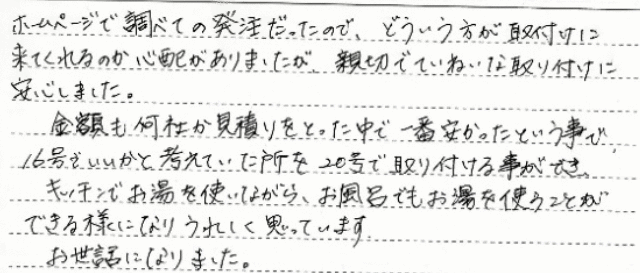 ホームページで調べての発注だったので、どういう方が取付けに
来てくれるのか心配がありましたが、親切でていねいな取り付けに
安心しました。
金額も何社か見積りをとった中で一番安かったという事で、
16号でいいかと考えていた所を20号で取り付ける事ができ、
キッチンでお湯を使いながら、お風呂でもお湯を使うことが
できる様になりうれしく思っています。
お世話になりました。